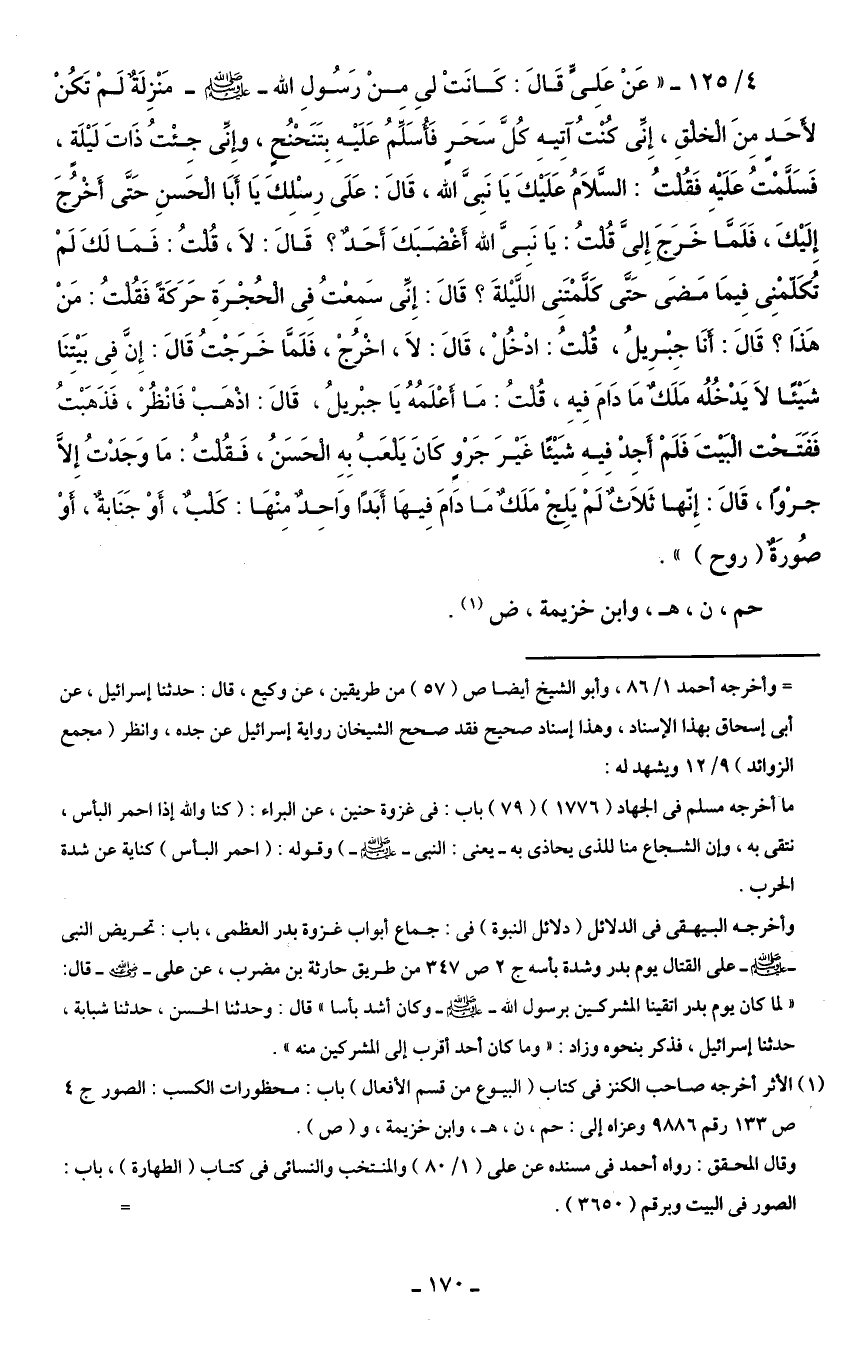 ٤/ ١٢٥ ـ « عَنْ عَلِىٍّ قَالَ : كَانَتْ لِى مِنْ رَسُولِ الله ـ ﷺ ـ مَنْزِلَةٌ لَمْ تَكُنْ
لأَحَدٍ مِنَ الْخَلْقِ ، إِنِّى كُنْتُ آتِيهِ كُلَّ سَحَرٍ فَأُسَلِّمُ عَلَيْهِ بِتَنَحْنُحٍ ، وإِنِّى جِئْتُ ذَاتَ لَيْلَةٍ ،
فَسَلَّمْتُ عَلَيْهِ فَقُلْتُ : السَّلاَمُ عَلَيْكَ يَا نَبِىَّ الله ، قَالَ : عَلَى رِسْلِكَ يَا أَبَا الْحَسَنِ حَتَّى أَخْرُجَ
إِلَيْكَ ، فَلَمَّا خَرَجَ إِلىَّ قُلْتُ : يَا نَبِىَّ الله أَغْضَبَكَ أَحَدٌ ؟ قَالَ : لاَ ، قُلْتُ : فَمَا لَكَ لَمْ
تُكَلِّمْنِى فِيمَا مَضَى حَتَّى كَلَّمْتَنِى اللَّيْلَةَ ؟ قَالَ : إِنِّى سَمِعْتُ فِى الْحُجْرَةِ حَرَكَةً فَقُلْتُ : مَنْ
هَذَا ؟ قَالَ : أَنَا جِبْرِيلُ ، قُلْتُ : ادْخُلْ ، قَالَ : لاَ ، اخْرُجْ ، فَلَمَّا خَرَجْتُ قَالَ : إِنَّ فِى بَيْتِنَا
شَيْئًا لاَ يَدْخُلُه مَلَكٌ مَا دَامَ فِيهِ ، قُلْتُ : مَا أَعْلَمُهُ يَا جِبْرِيلُ ، قَالَ : اذْهَبْ فَانْظُرْ ، فَذَهَبْتُ
فَفَتَحْت الْبَيْتَ فَلَمْ أَجِدْ فِيهِ شَيْئًا غَيْرَ جَرْوٍ كَانَ يَلْعَبُ بِهِ الْحَسَنُ ، فَقُلْتُ : مَا وَجَدْتُ إِلاَّ
جِرْوًا ، قَالَ : إِنَّها ثَلاَثٌ لَمْ يَلِجْ مَلَكٌ مَا دَامَ فِيهَا أَبَدًا وَاحِدٌ مِنْهَا : كَلْبٌ ، أَوْ جَنَابَةٌ ، أَوْ
صُورَةٌ ( روح ) » .
حم ، ن ، هـ ، وابن خزيمة ، ض (١) .
= وأخرجه أحمد ١/ ٨٦ ، وأبو الشيخ أيضا ص ( ٥٧ ) من طريقين ، عن وكيع ، قال : حدثنا إسرائيل ، عن
أبى إسحاق بهذا الإسناد ، وهذا إسناد صحيح فقد صحح الشيخان رواية إسرائيل عن جده ، وانظر ( مجمع
الزوائد ) ٩/ ١٢ ويشهد له :
ما أخرجه مسلم فى الجهاد ( ١٧٧٦ ) ( ٧٩ ) باب : فى غزوة حنين ، عن البراء : ( كنا والله إذا احمر البأس ،
نتقى به ، وإن الشجاع منا للذى يحاذى به ـ يعنى : النبى ـ ﷺ ـ ) وقوله : ( احمر البأس ) كناية عن شدة
الحرب .
وأخرجه البيهقى فى الدلائل ( دلائل النبوة ) فى : جماع أبواب غزوة بدر العظمى ، باب : تحريض النبى
ـ ﷺ ـ على القتال يوم بدر وشدة بأسه ج ٢ ص ٣٤٧ من طريق حارثة بن مضرب ، عن على ـ رضي الله عنه ـ قال:
« لما كان يوم بدر اتقينا المشركين برسول الله ـ ﷺ ـ وكان أشد بأسا » قال : وحدثنا الحسن ، حدثنا شبابة ،
حدثنا إسرائيل ، فذكر بنحوه وزاد : « وما كان أحد أقرب إلى المشركين منه » .
(١) الأثر أخرجه صاحب الكنز فى كتاب ( البيوع من قسم الأفعال ) باب : محظورات الكسب : الصور ج ٤
ص ١٣٣ رقم ٩٨٨٦ وعزاه إلى : حم ، ن ، هـ ، وابن خزيمة ، و ( ص ) .
وقال المحقق : رواه أحمد فى مسنده عن على ( ١/ ٨٠ ) والمنتخب والنسائى فى كتاب ( الطهارة ) ، باب :
الصور فى البيت وبرقم ( ٣٦٥٠ ) . =
ـ ١٧٠ ـ